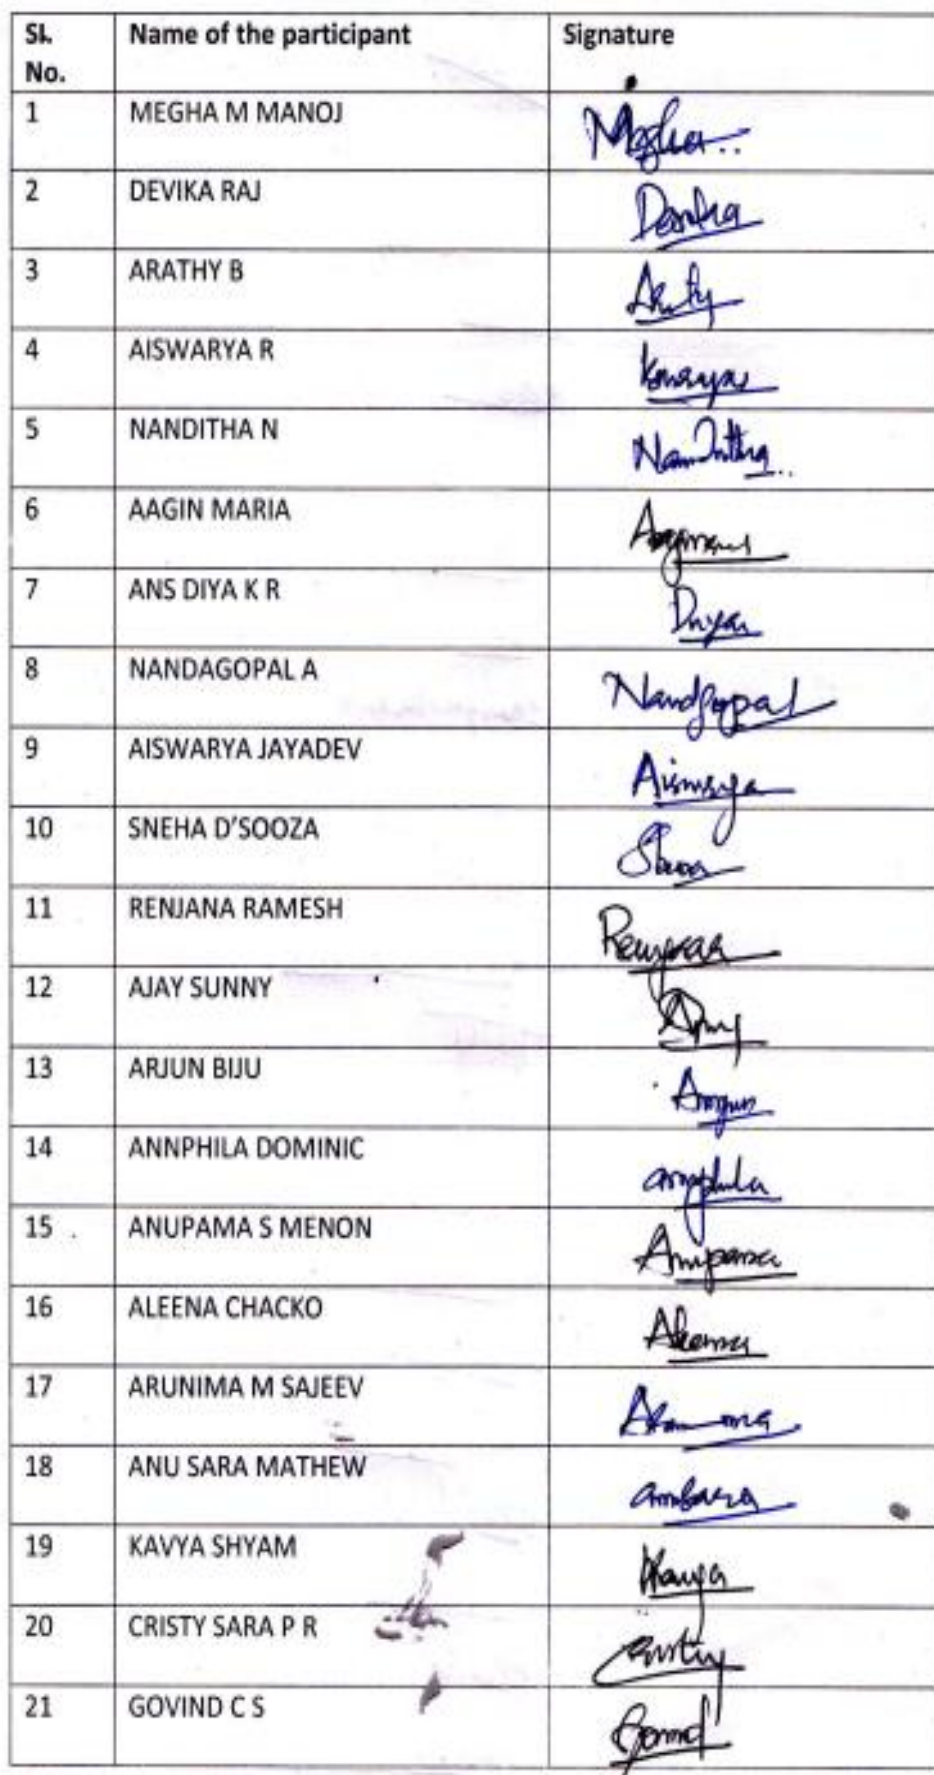 Sl. No. Name of the participant Signature
1 MEGHA M MANOJ Megha..
2 DEVIKA RAJ Devika
3 ARATHY B
4 AISWARYA R
5 NANDITHA N Nanditha..
6 AAGIN MARIA
7 ANS DIYA K R Diya
8 NANDAGOPAL A Nandgopal
9 AISWARYA JAYADEV Aiswarya
10 SNEHA D'SOOZA
11 RENJANA RAMESH
12 AJAY SUNNY
13 ARJUN BIJU Arjun
14 ANNPHILA DOMINIC annphila
15 ANUPAMA S MENON Anupama
16 ALEENA CHACKO Aleena
17 ARUNIMA M SAJEEV
18 ANU SARA MATHEW
19 KAVYA SHYAM Kavya
20 CRISTY SARA P R Cristy
21 GOVIND C S Govind